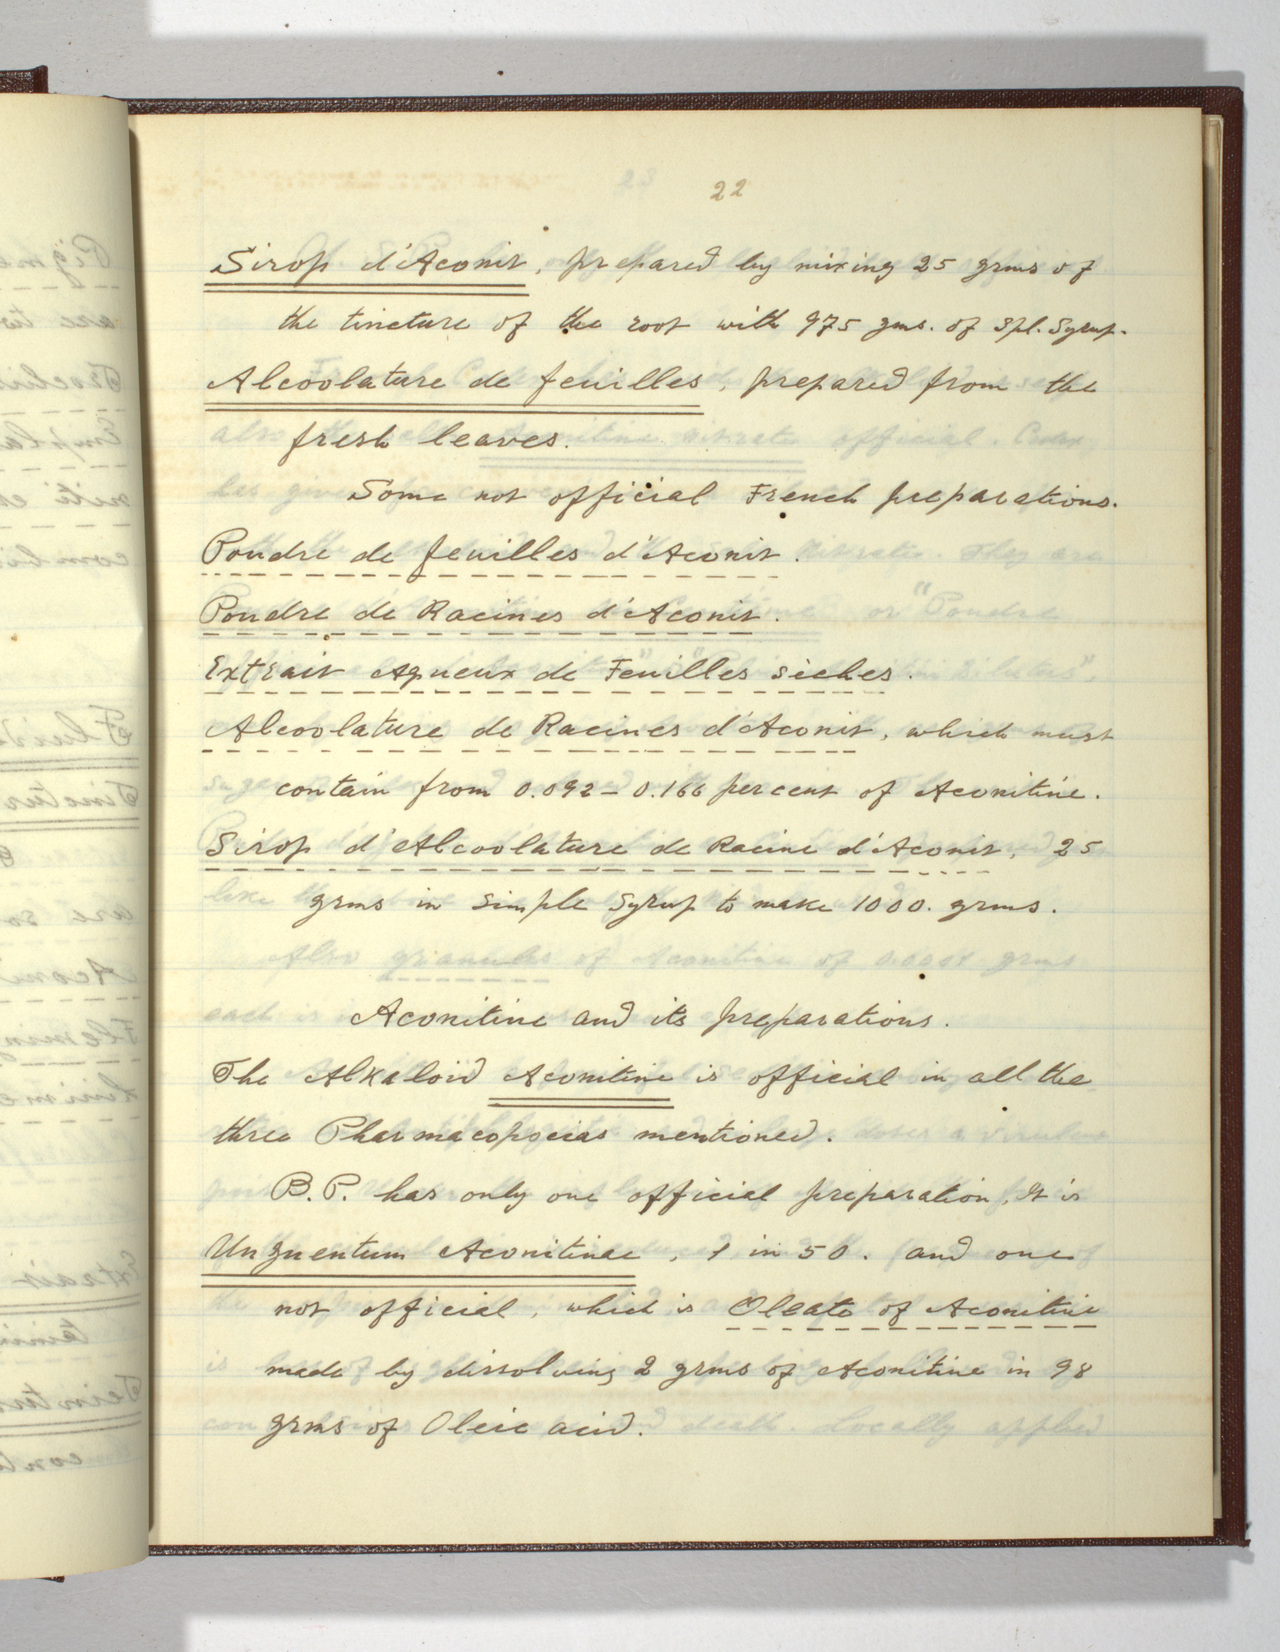 22
Sirop d'Aconit, prepared by mixing 25 grms of
the tincture of the root with 975 gms. of Spl. Syrup.
Alcoolature de feuilles, prepared from the
fresh leaves.
Some not official French preparations.
Poudre de feuilles d'Aconit.
Poudre de Racines d'Aconit.
Extrait Aqueux de Feuilles sèches.
Alcoolature de Racines d'Aconit, which must
contain from 0.092 - 0.166 per cent of Aconitine.
Sirop d'Alcoolature de Racine d'Aconit, 25
grms in Simple Syrup to make 1000. grms.
Aconitine and its preparations.
The Alkaloid Aconitine is official in all the
three Pharmacopoeias mentioned.
B.P. has only one official preparation, It is
Unguentum Aconitinae, 1 in 50. and one
not official, which is Oleate of Aconitine
made by dissolving 2 grms of Aconitine in 98
grms of Oleic acid.